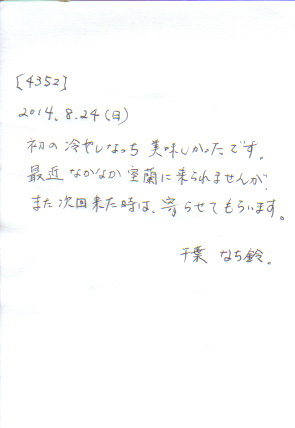 [4352]
2014. 8.24(日)
初の冷やしなっち 美味しかったです。
最近 なかなか 室蘭に来られませんが
また次回来た時は、寄らせてもらいます。
千葉 なち鈴。